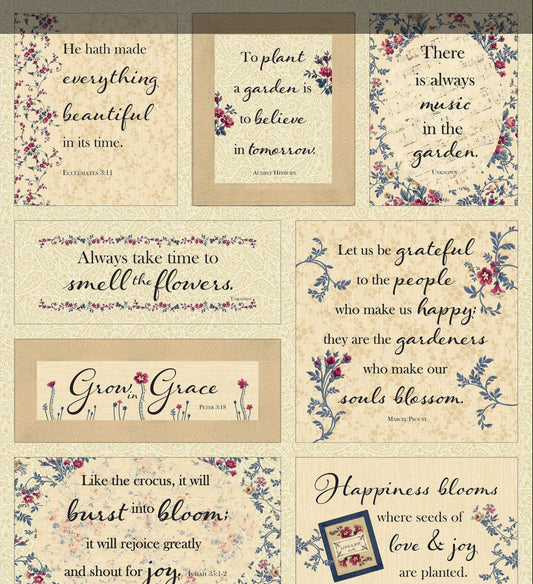 He hath made
everything
beautiful
in its time.
Ecclesiates 3:11
To plant
a garden is
to believe
in tomorrow.
Audrey Hepburn
There
is always
music
in the
garden.
Unknown
Always take time to
smell the flowers.
Unknown
Let us be grateful
to the people
who make us happy;
they are the gardeners
who make our
souls blossom.
Marcel Proust
Grow in Grace
Peter 3:18
Like the crocus, it will
burst into bloom;
it will rejoice greatly
and shout for joy.
Isaiah 35:1-2
Happiness blooms
where seeds of
love & joy
are planted.